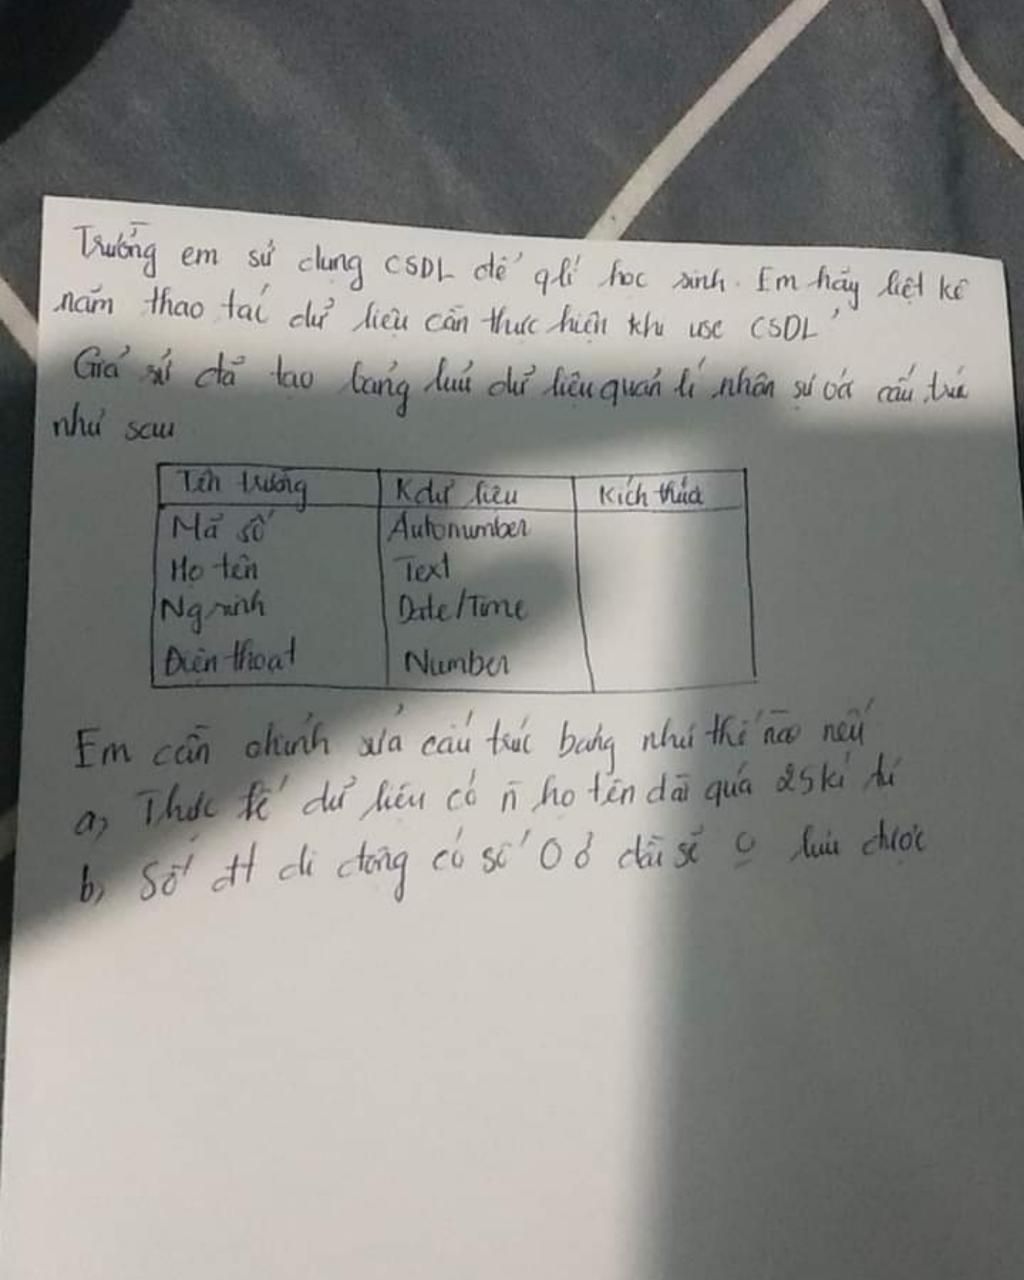 Trường em sử dụng CSDL để qlí học sinh. Em hãy liệt kê
năm thao tác dữ liệu cần thực hiện khi use CSDL
Giả sử đã tạo bảng lưu dữ liệu quản lí nhân sự với cấu trúc
như sau
Tên trường Kdữ liệu Kích thước
Mã số Autonumber
Họ tên Text
Ng sinh Date/Time
Điện thoại Number
Em cần chỉnh sửa cấu trúc bảng như thế nào nếu
a, Thực tế dữ liệu có n̄ họ tên dài quá 25 kí tự
b, Số đt di động có số 0 ở đầu sẽ lưu được